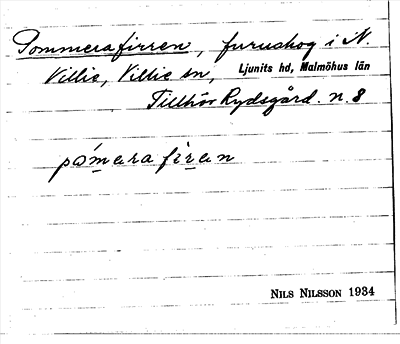 Pommerafirren, furuskog i N.
Villie, Villie sn, Ljunits hd, Malmöhus län
Tillhör Rydsgård. n. 8
pòmera fìren
NILS NILSSON 1934